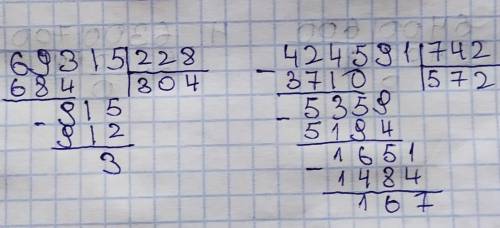 69315 | 228
684 | 304
- 915
912
3
- 424591 | 742
3710 | 572
- 5359
5194
- 1651
1484
167